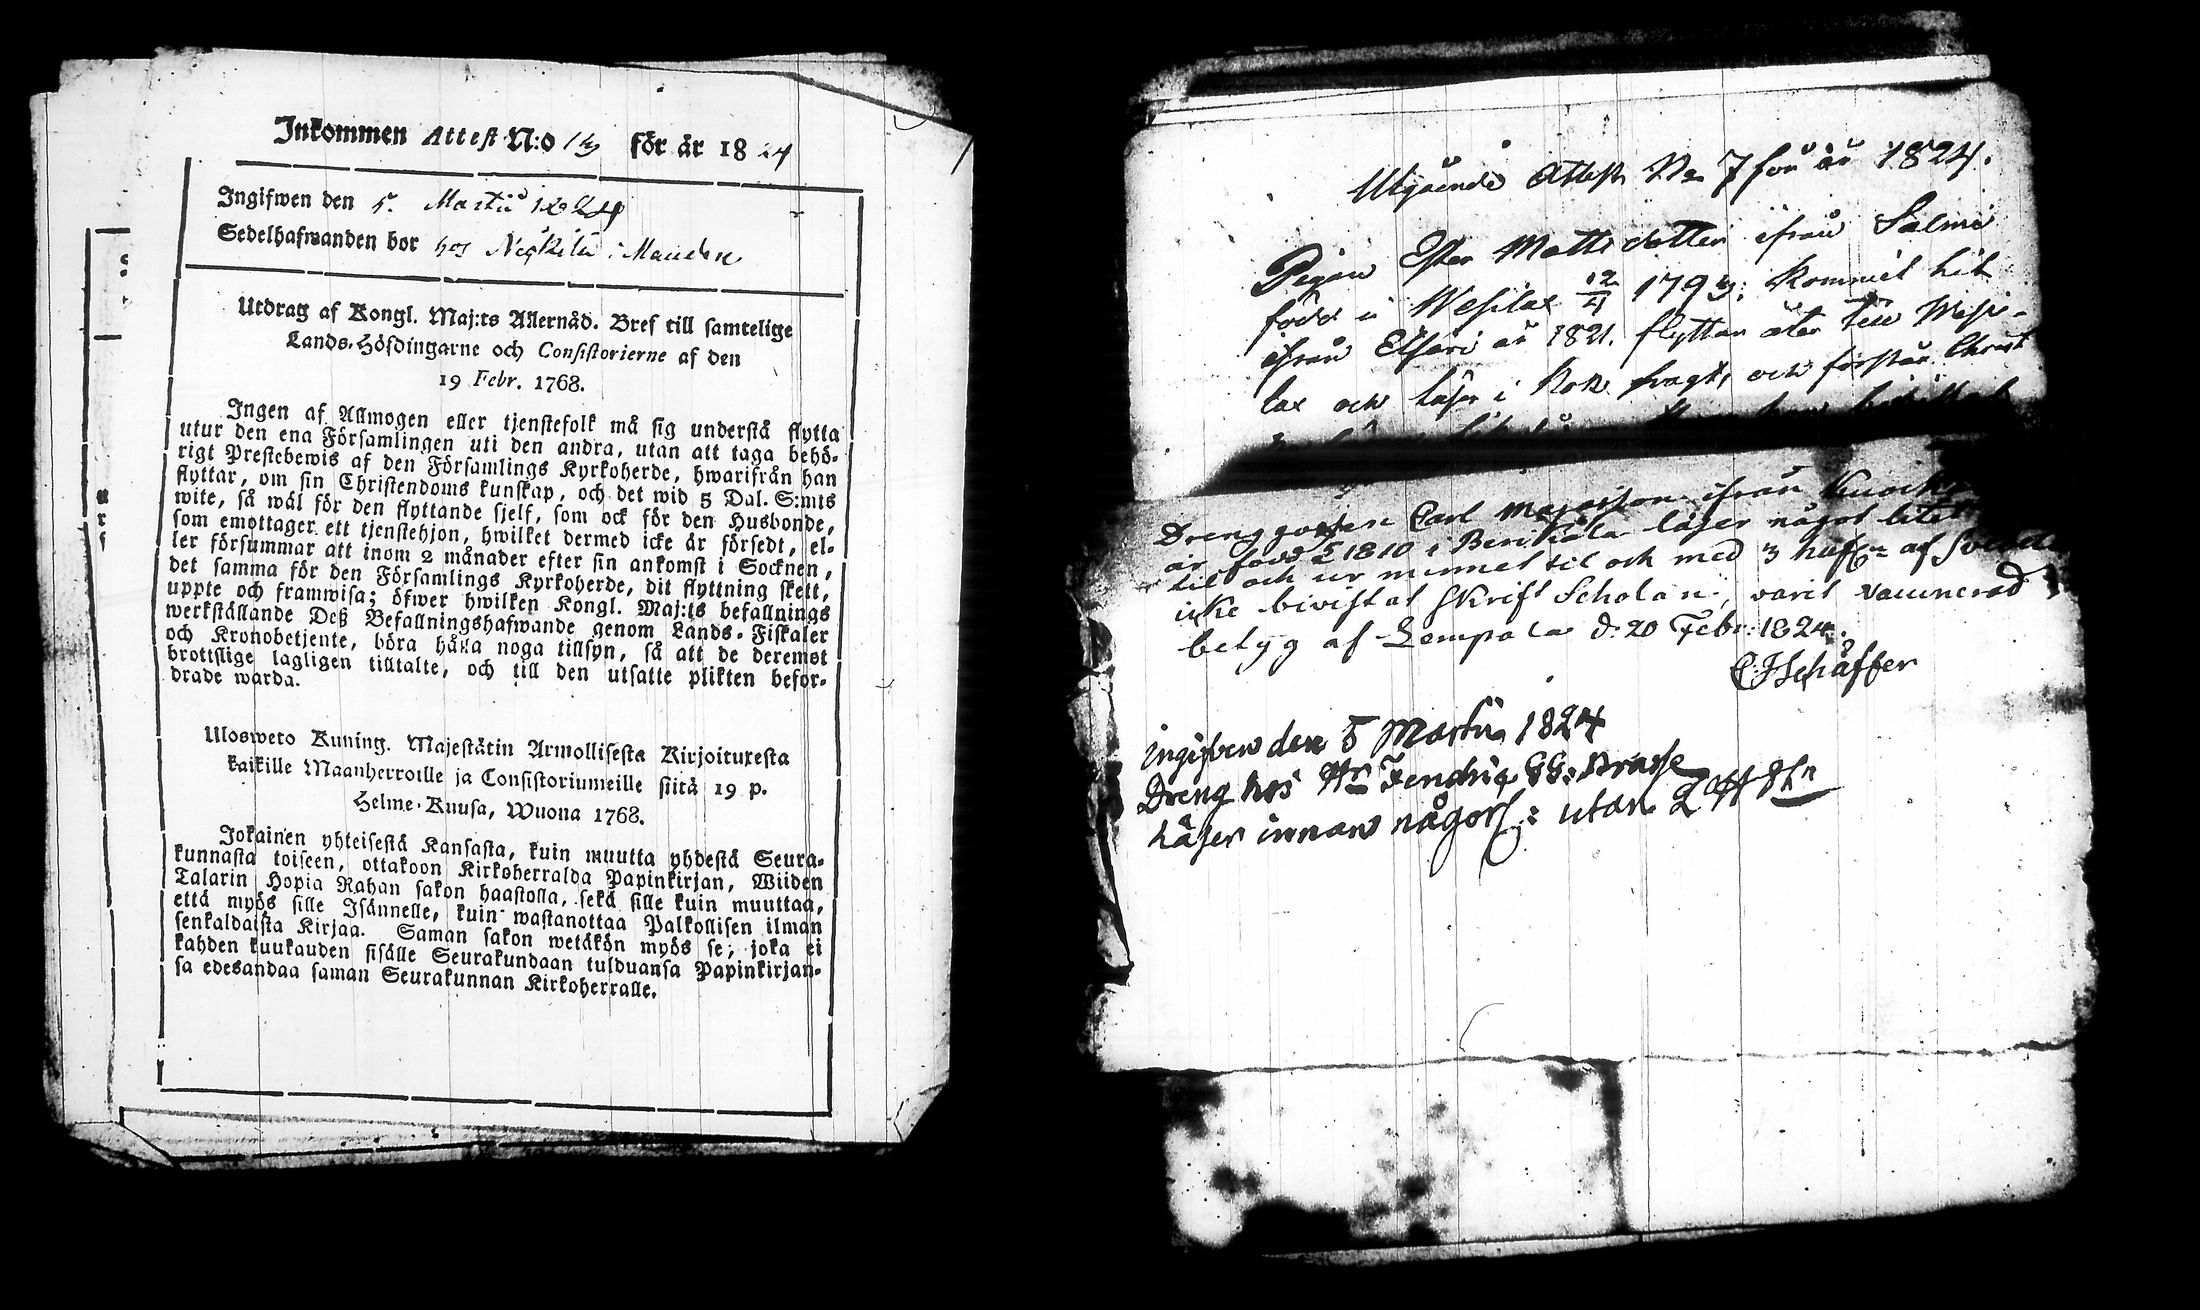 Inkommen Attest N:o 13 för år 1824
Ingifwen den 5. Martii 1824
Sedelhafwanden bor hos
Utdrag af Kongl. Maj:ts Allernåd. Bref till samtelige
Lands-Höfdingarne och Consistorierne af den
19 Febr. 1768.
Ingen af Allmogen eller tjenstefolk må sig understå flytta
utur den ena Församlingen uti den andra, utan att taga behö-
rigt Prestebewis af den Församlings Kyrkoherde, hwarifrån han
flyttar, om sin Christendoms kunskap, och det wid 5 Dal. S:mts
wite, så wäl för den flyttande sjelf, som ock för den Husbonde,
som emottager ett tjenstehjon, hwilket dermed icke är försedt, el-
ler försummar att inom 2 månader efter sin ankomst i Socknen,
det samma för den Församlings Kyrkoherde, dit flyttning skett,
uppte och framwisa; öfwer hwilken Kongl. Maj:ts befallnings
werkställande Deß Befallningshafwande genom Lands-Fiskaler
och Kronobetjente, böra hålla noga tillsyn, så att de deremot
brottslige lagligen tilltalte, och till den utsatte plikten befor-
drade warda.
Ulosweto Kuning. Majestätin Armollisesta Kirjoituxesta
kaikille Maanherroille ja Consistoriumeille siitä 19 p.
Helme-Kuusa, Wuona 1768.
Jokainen yhteisestä Kansasta, kuin muutta yhdestä Seura-
kunnasta toiseen, ottakoon Kirkoherralda Papinkirjan, Wiiden
Talarin Hopia Rahan sakon haastolla, sekä sille kuin muuttaa,
että myös sille Isännelle, kuin wastanottaa Palkollisen ilman
senkaldaista Kirjaa. Saman sakon wetäkön myös se, joka ei
kahden kuukauden sisälle Seurakundaan tulduansa Papinkirjan-
sa edesandaa saman Seurakunnan Kirkoherralle.
Utgående Attest No 7 för år 1824.
Pigan Ester Matts dotter ifrån Salmi
född i Wesilax 12/4 1793; kommit hit
ifrån år 1821. flyttar åter till Wesi-
lax och läser i bok och förstår Christ
Drenggossen Carl ifrån
är född 1810 i Berkiala läser något litet
til och ur minnet til och med 3 af
icke bivistat Skrift Scholan, varit vaccinerad
betyg af Lempala d: 20 Febr: 1824.
CJSchäffer
ingifven den 5 Martii 1824
Dreng hos
Läser innan något: utan 2